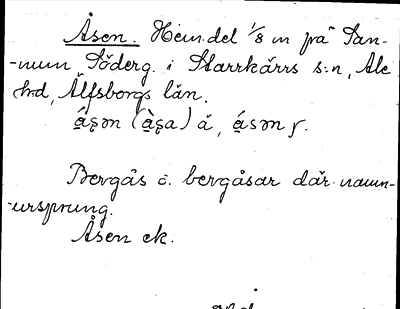 Åsen. Hem.del 1/8 m på San-
-num Söderg. i Starrkärrs s:n, Ale
h:d, Älfsborgs län.
ǻs̨ən (å̀s̨a) ä, ǻsən ɼ.
Bergås o. bergåsar där. namn-
-ursprung.
Åsen ek.